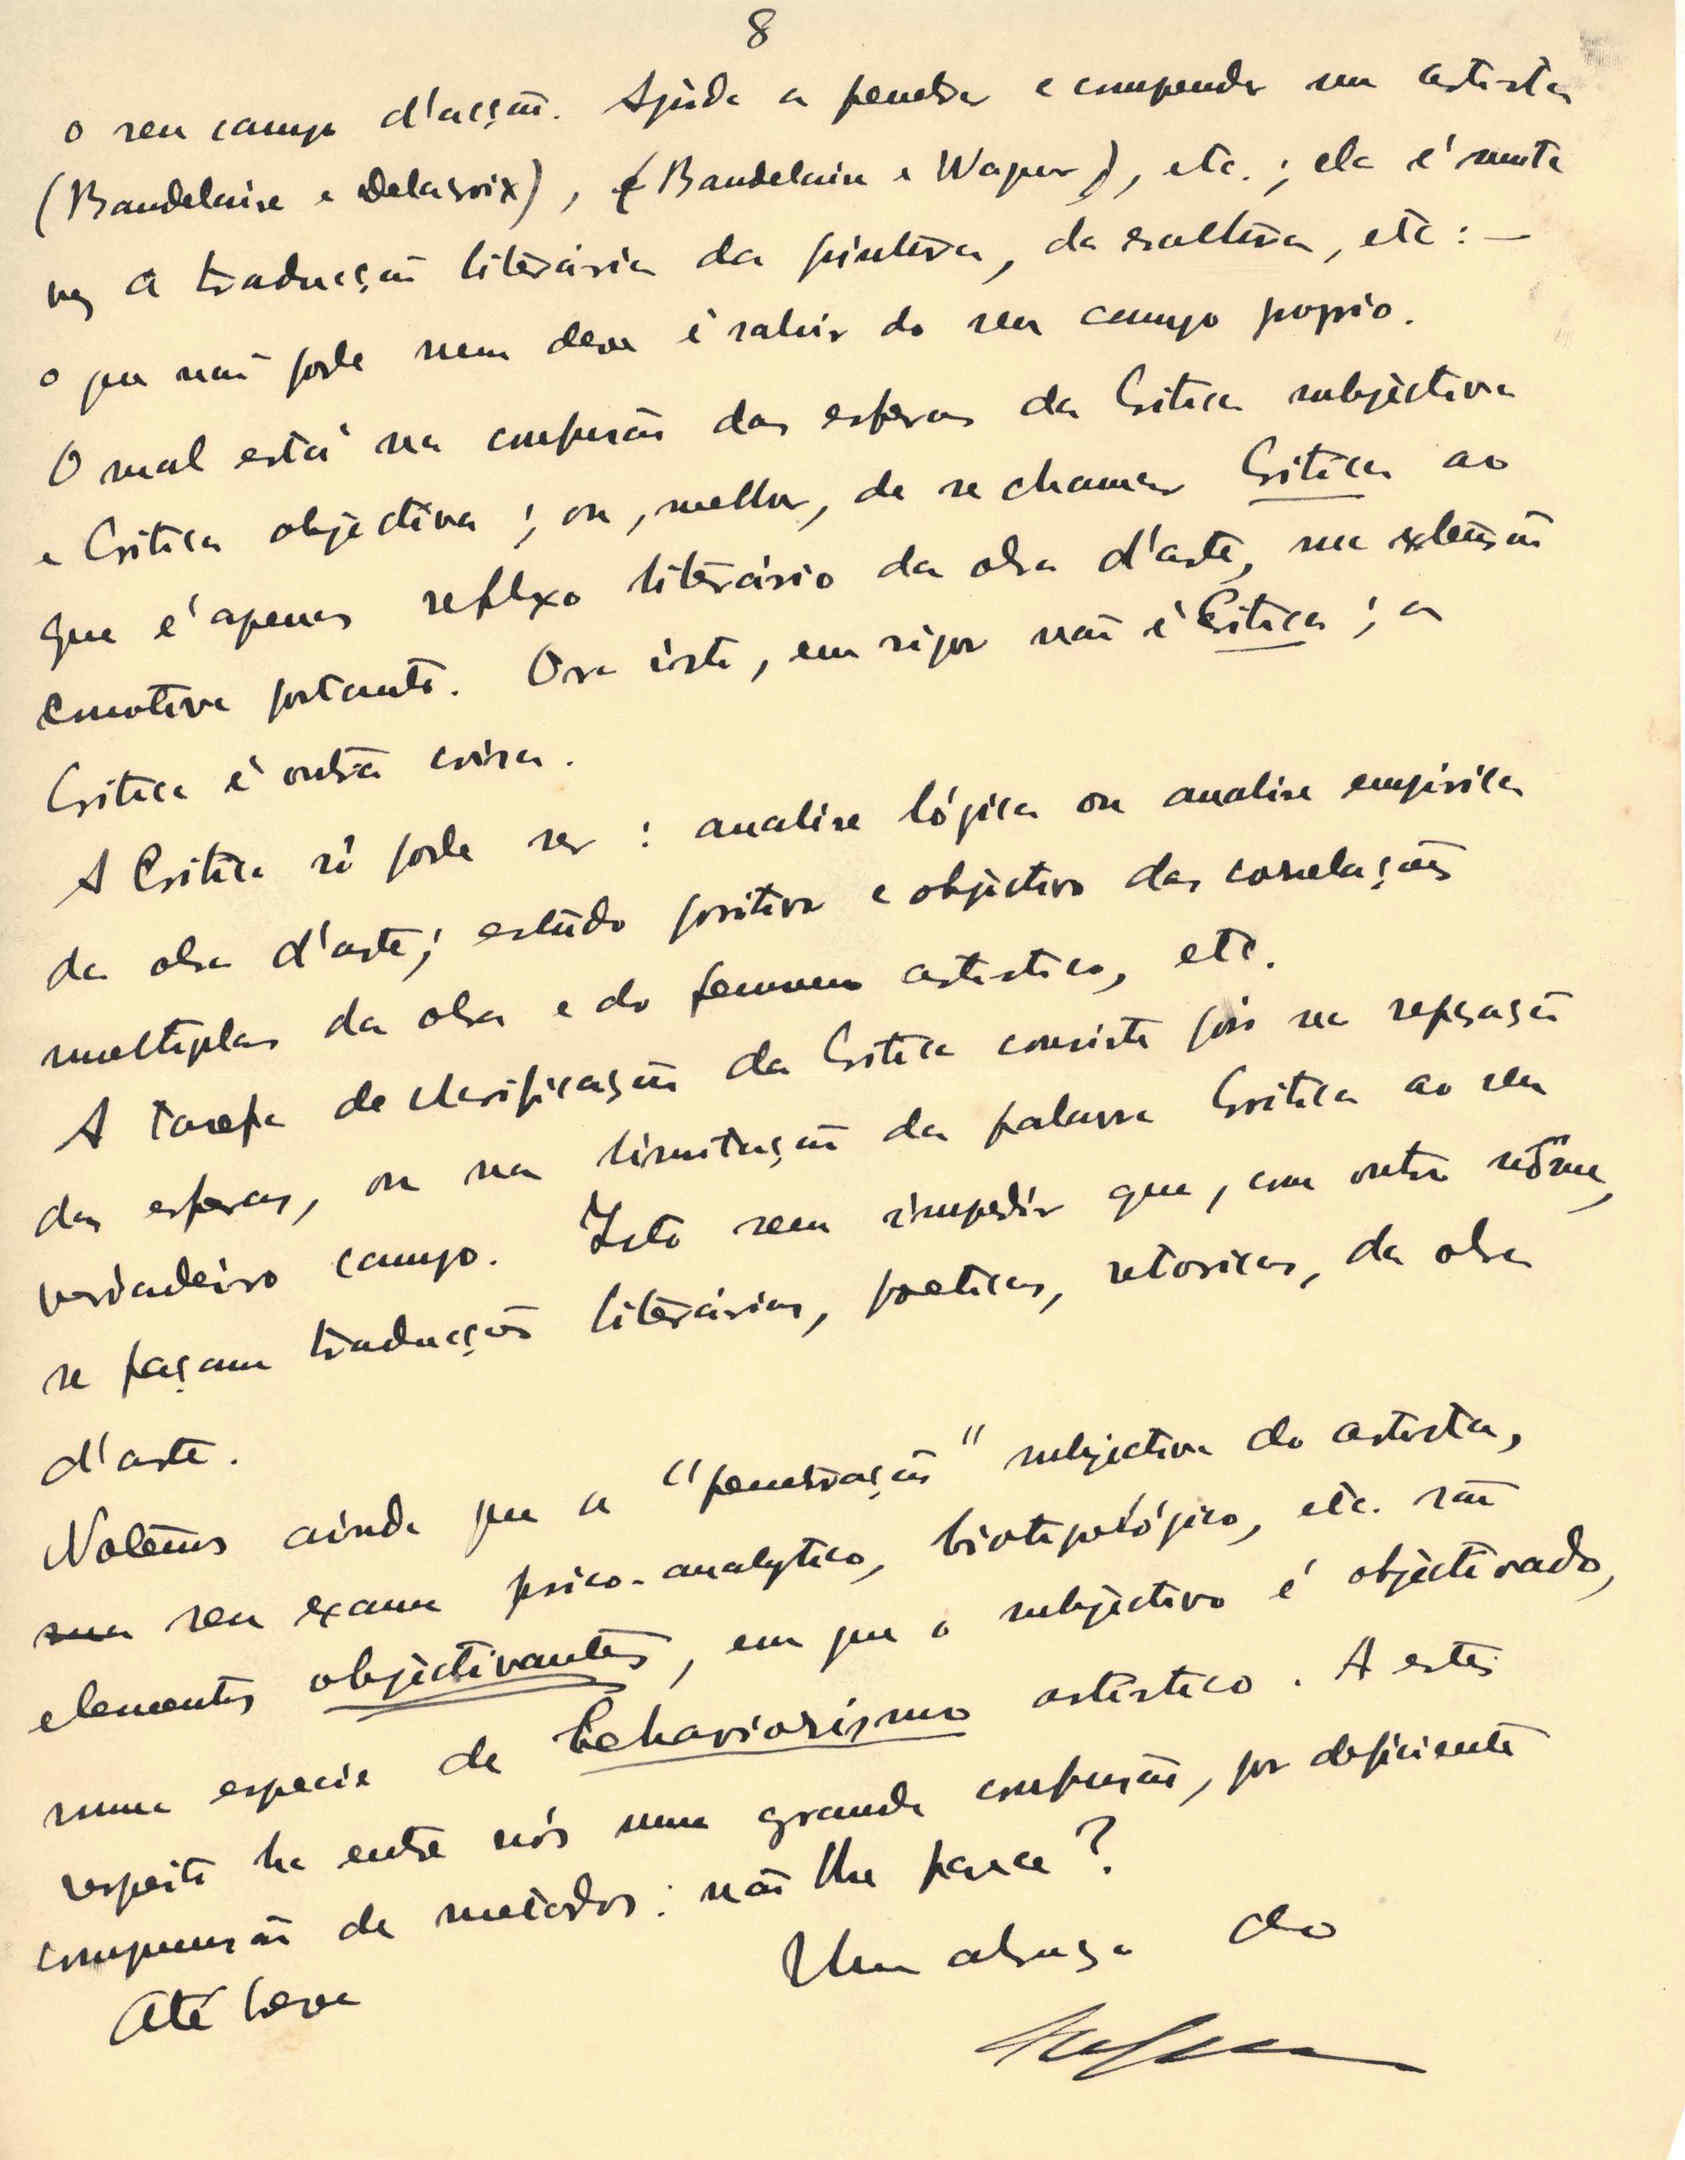 8
o seu campo d'acção. Ajuda a penetrar e compreender um artista
(Baudelaire e Delacroix), (Baudelaire e Wagner), etc.; ela é muita
vez a traducção literária da pintura, da escultura, etc: —
o que não pode nem deve é sahir do seu campo proprio.
O mal está na confusão das esferas da Critica subjectiva
e Critica objectiva; ou, melhor, de se chamar Critica ao
que é apenas reflexo literário da obra d'arte, sua extensão
emotiva portanto. Ora isto, em rigor não é Critica; a
Critica é outra coisa.
A Critica só pode ser: analise lógica ou analise empirica
da obra d'arte; estudo positivo e objectivo das correlações
multiplas da obra e do fenomeno artistico, etc.
A tarefa de clarificação da Critica consiste pois na separação
das esferas, ou na limitação da palavra Critica ao seu
verdadeiro campo. Isto sem impedir que, com outro nôme,
se façam traducções literárias, poeticas, retoricas, da obra
d'arte.
Notemos ainda que a "penetração" subjectiva do artista,
sua seu exame psico-analytico, biotipológico, etc. são
elementos objectivantes, em que o subjectivo é objectivado,
numa especie de behaviorismo artistico. A este
respeito ha entre nós uma grande confusão, por deficiente
compreensão de metodos: não lhe parece?
Um abraço do
Até breve